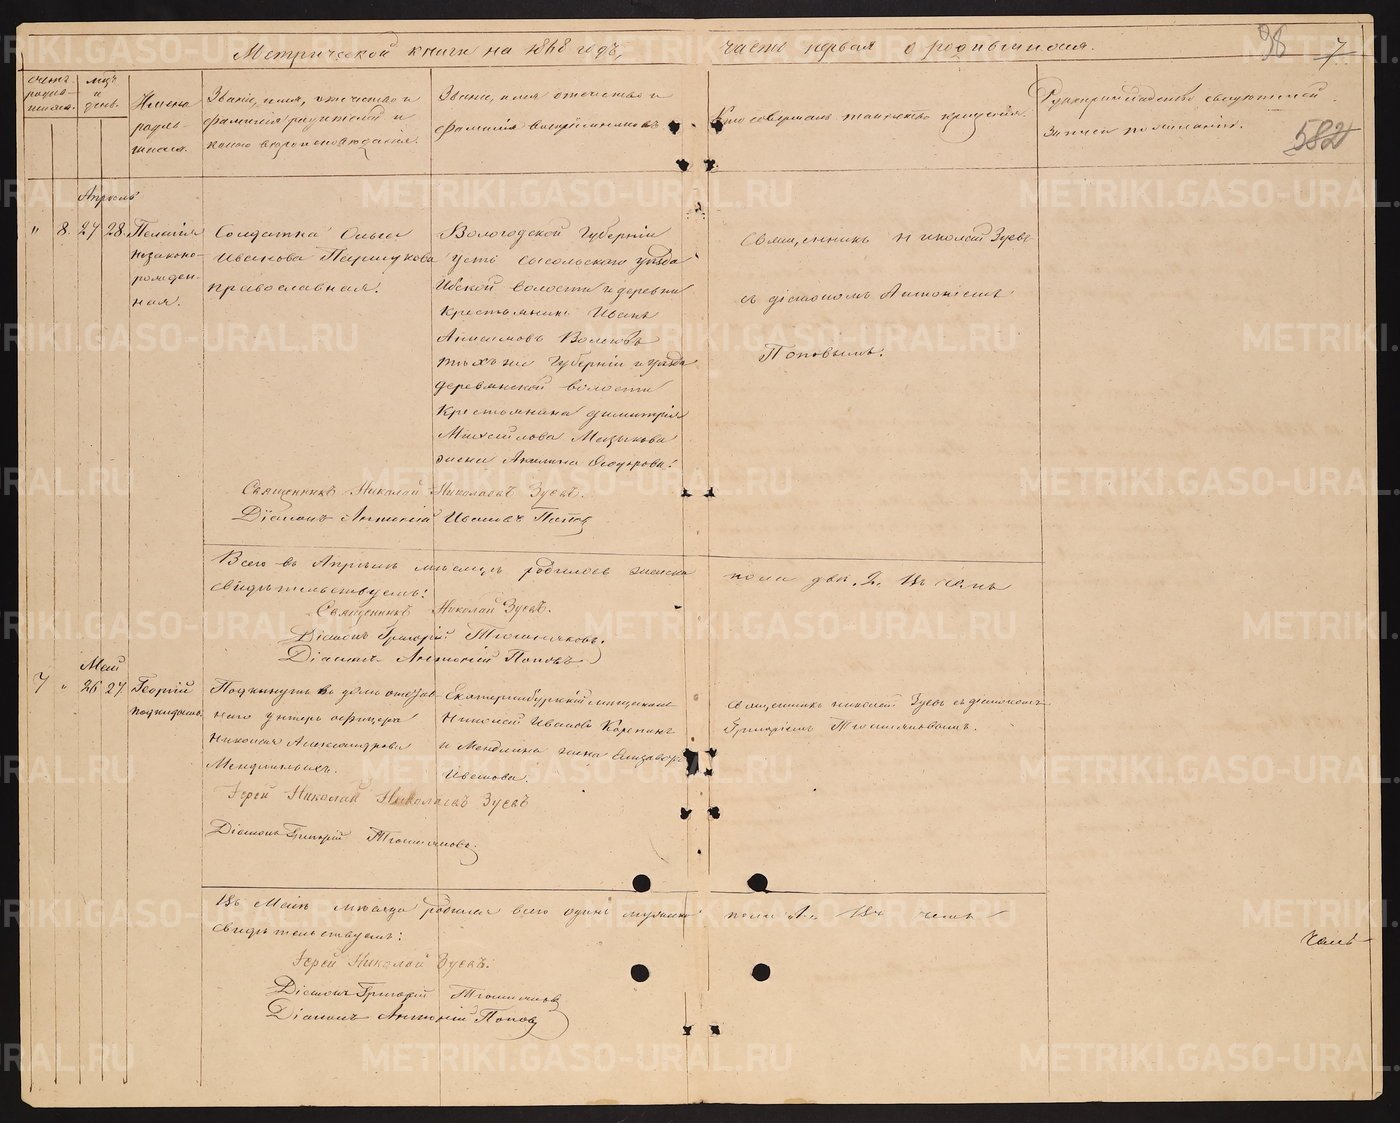 Метрической книги на 1868 годъ, часть первая о родившихся.
98 7
582
Счетъ родив-шихся.
мц҃ъ и день.
Имена родив-шихся.
Званіе, имя, отчество и
фамилія родителей и
какого вѣроисповѣданія.
Званіе, имя отчество и
фамилія воспріемниковъ
Кто совершалъ таинство крещенія.
Рукоприкладство свидѣтелей
записи по желанію.
Апрѣль
" 8. 27 28.
Пелагія
незаконо-
рожден-
ная.
Солдатка Ольга
Иванова
православная.
Вологодской Губерніи
Усть сысольскаго уѣзда
волости и деревни
Крестьянинъ Иванъ
Анисимовъ
тѣхъ же Губерніи и уѣзда
деревянской волости
Крестьянина Димитрія
Михайлова
жена Акилина Ѳедорова.
Священникъ Николай Зуевъ
съ діакономъ Антоніемъ
Поповымъ.
Священникъ Николай Николаевъ Зуевъ.
Діаконъ Антоній Ивановъ Поповъ
Всего въ Апрѣлѣ мѣсяцѣ родилось женска пола двѣ. 2. Въ чемъ
свидѣтельствуемъ:
Священникъ Николай Зуевъ.
Діаконъ Григорій
Діаконъ Антоній Поповъ
Май
7 " 26 27
Георгій
подкидышъ.
Подкинутъ въ домъ отстав-
наго унтеръ офицера
Николая Александрова
Екатеринбургскій мѣщанинъ
Николай Ивановъ
и жена Елизавета
Иванова.
Священникъ Николай Зуевъ съ діакономъ
Григоріемъ
Іерей Николай Николаевъ Зуевъ
Діаконъ Григорій
Въ Маѣ мѣсяцѣ родился всего одинъ мужеска пола 1. Въ чемъ
свидѣтельствуемъ:
Іерей Николай Зуевъ.
Діаконъ Григорій
Діаконъ Антоній Поповъ
METRIKI.GASO-URAL.RU